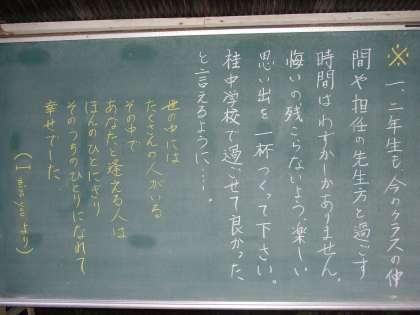 ※ 一、二年生も、今のクラスの仲
間や担任の先生方と過ごす
時間はわずかしかありません。
悔いの残こらないよう、楽しい
思い出を一杯つくって下さい。
桂中学校で過ごせて良かった
と言えるように…。
世の中には
たくさんの人がいる
その中で
あなたと逢える人は
ほんのひとにぎり
そのうちのひとりになれて
幸せでした。
より)